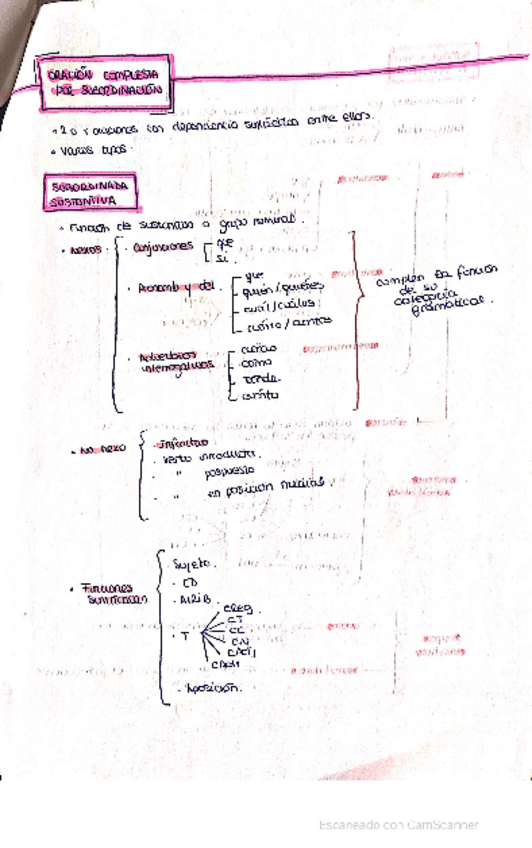 ORACIÓN COMPLEJA
POR SUBORDINACIÓN
• 2 o + oraciones con dependencia sintáctica entre ellas.
• varios tipos.
SUBORDINADA
SUSTANTIVA
• Función de sustantivo o grupo nominal.
• Nexos
Conjunciones
que
si
Pronomb y det.
que
quién/quiénes
cuál/cuáles
cuánto/cuántos
Adverbios
interrogativos
cuándo
cómo
dónde
cuánto
cumplen la función
de su
categoría
gramatical.
• No nexo
Infinitivo
• Verbo introductor.
• " pospuesto
• " en posición medial.
• Funciones
sintácticas
• Sujeto.
• CD
• Atrib.
• T
CREG.
CT
CC
CN
CADJ
CADV
• Aposición.
Escaneado con CamScanner